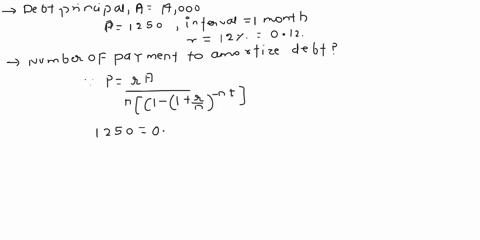 → Debt principal, A = A,000
P = 1250 , interval = 1 month
r = 12 %. = 0.12.
→ Number of payment to amortize debt?
∵ P = rA / n[(1-(1+r/n)^-nt]
1250 = 0.